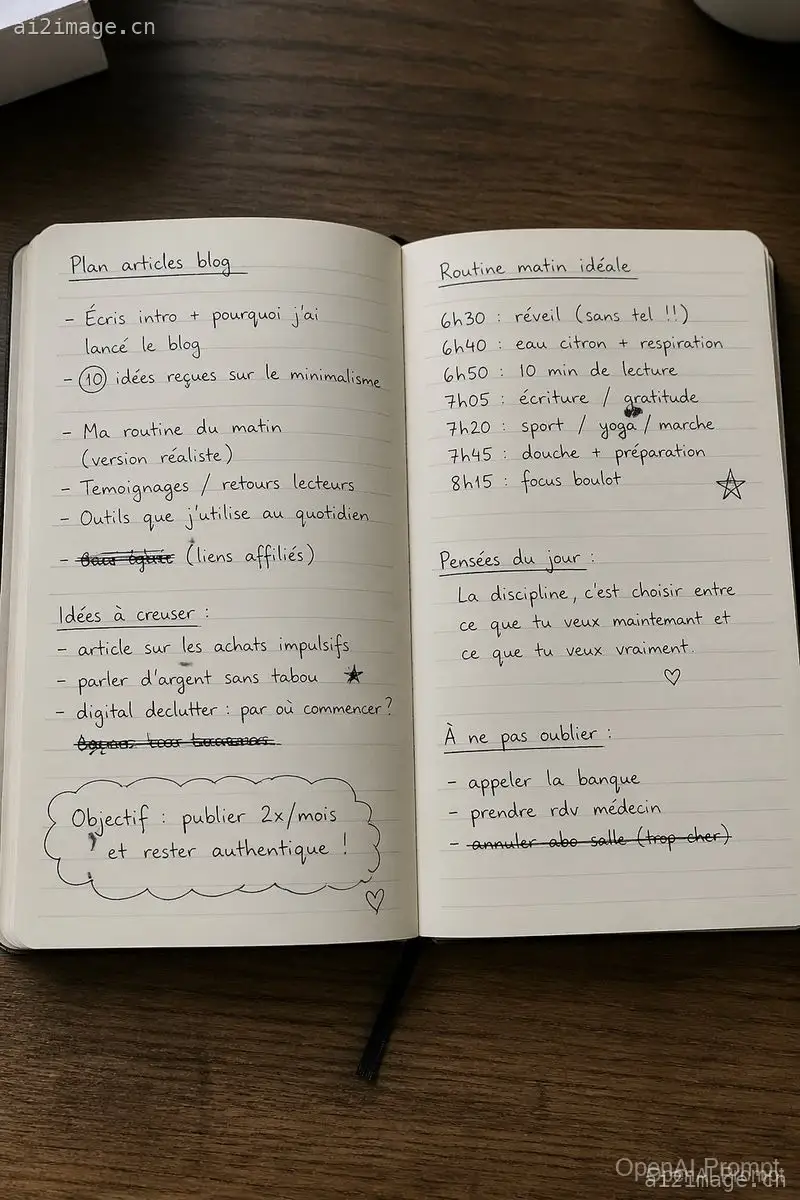 ai2image.cn
Plan articles blog
- Écris intro + pourquoi j'ai
lancé le blog
- 10 idées reçues sur le minimalisme
- Ma routine du matin
(version réaliste)
- Temoignages / retours lecteurs
- Outils que j'utilise au quotidien
- (liens affiliés)
Idées à creuser :
- article sur les achats impulsifs
- parler d'argent sans tabou
- digital declutter : par où commencer ?
Objectif : publier 2x/mois
et rester authentique !
Routine matin idéale
6h30 : réveil (sans tel !!)
6h40 : eau citron + respiration
6h50 : 10 min de lecture
7h05 : écriture / gratitude
7h20 : sport / yoga / marche
7h45 : douche + préparation
8h15 : focus boulot
Pensées du jour :
La discipline, c'est choisir entre
ce que tu veux maintemant et
ce que tu veux vraiment.
À ne pas oublier :
- appeler la banque
- prendre rdv médecin
- annuler abo salle (trop cher)
OpenAI Prompt
ai2image.cn